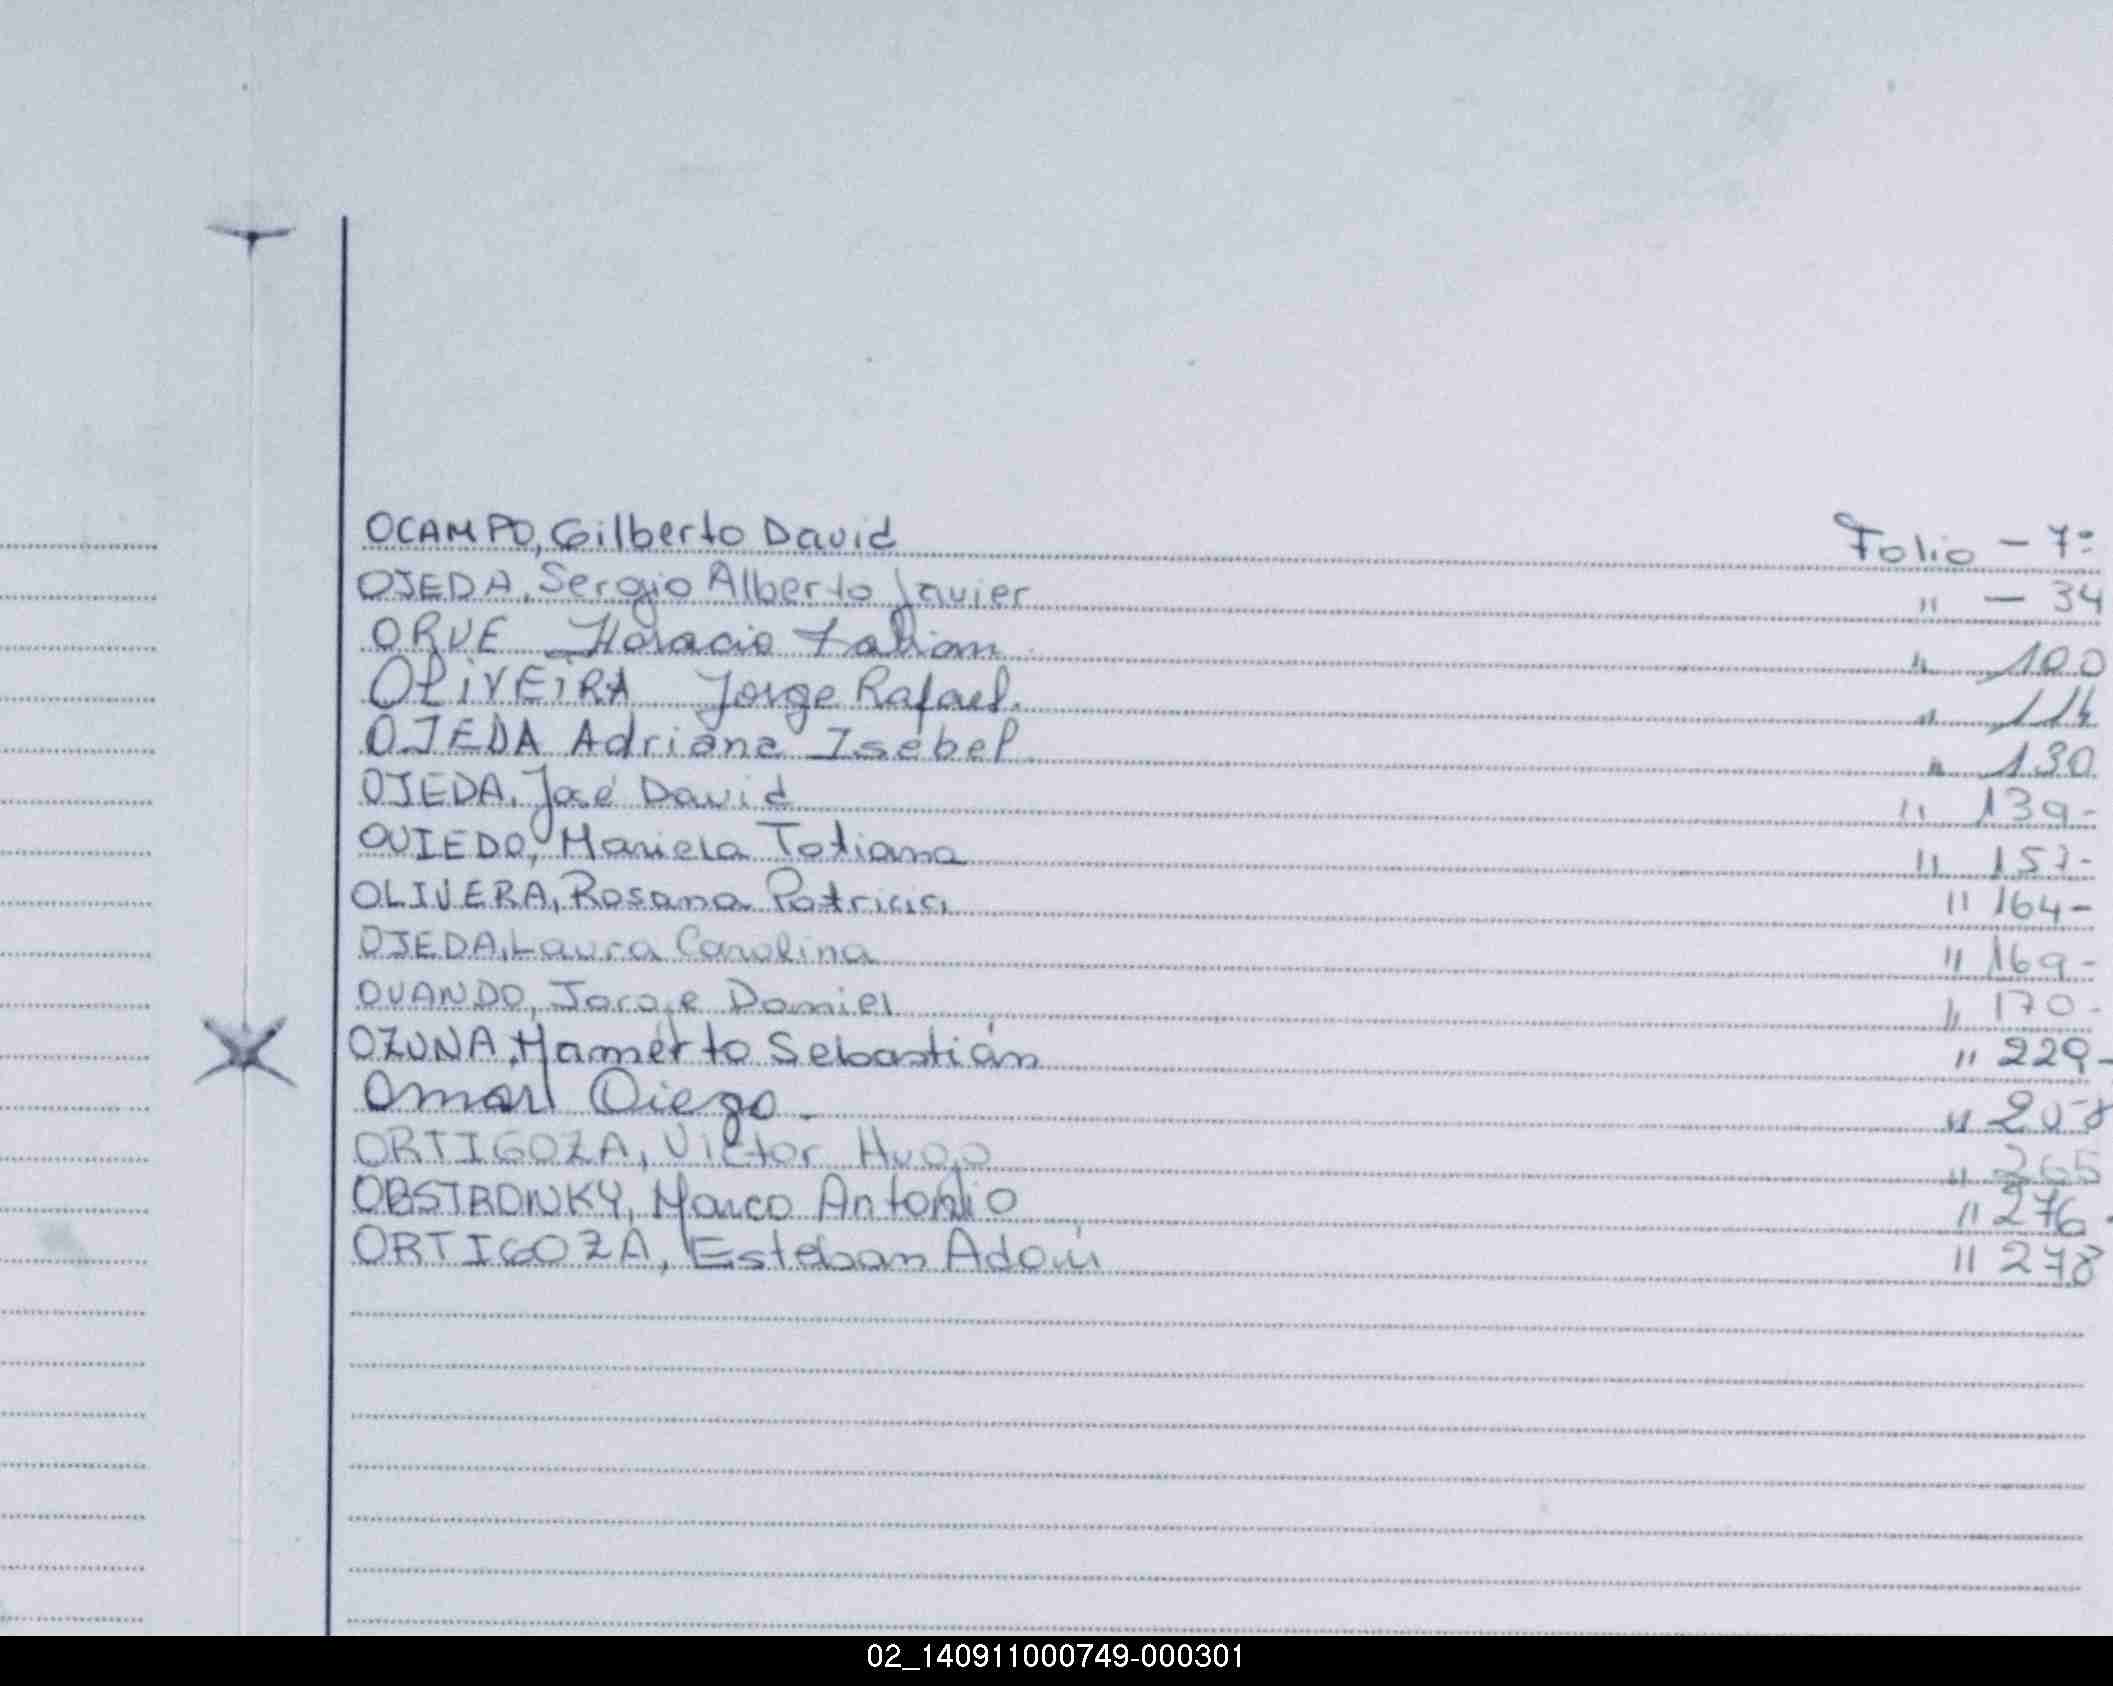 OCAMPO, Gilberto David Folio - 7=
OJEDA, Sergio Alberto Javier " - 34
ORUE Horacio Fabian " 100
OLIVEIRA Jorge Rafael. " 114
OJEDA Adriana Isabel " 130
OJEDA, José David " 139-
OVIEDO, Mariela Tatiana "
OLIVERA, Rosana Patricia " 164-
OJEDA, Laura Carolina " 169-
OVANDO, Jorge Daniel " 170-
OZUNA, Mamerto Sebastián " 229-
Omar Diego. "
ORTIGOZA, Victor Hugo " 265
OBSTRONKY, Marco Antonio " 276.
ORTIGOZA, Esteban " 278
02_140911000749-000301